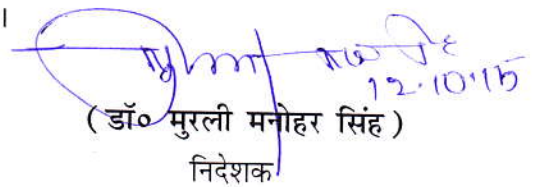 ।
12.10.15
( डॉ० मुरली मनोहर सिंह )
निदेशक